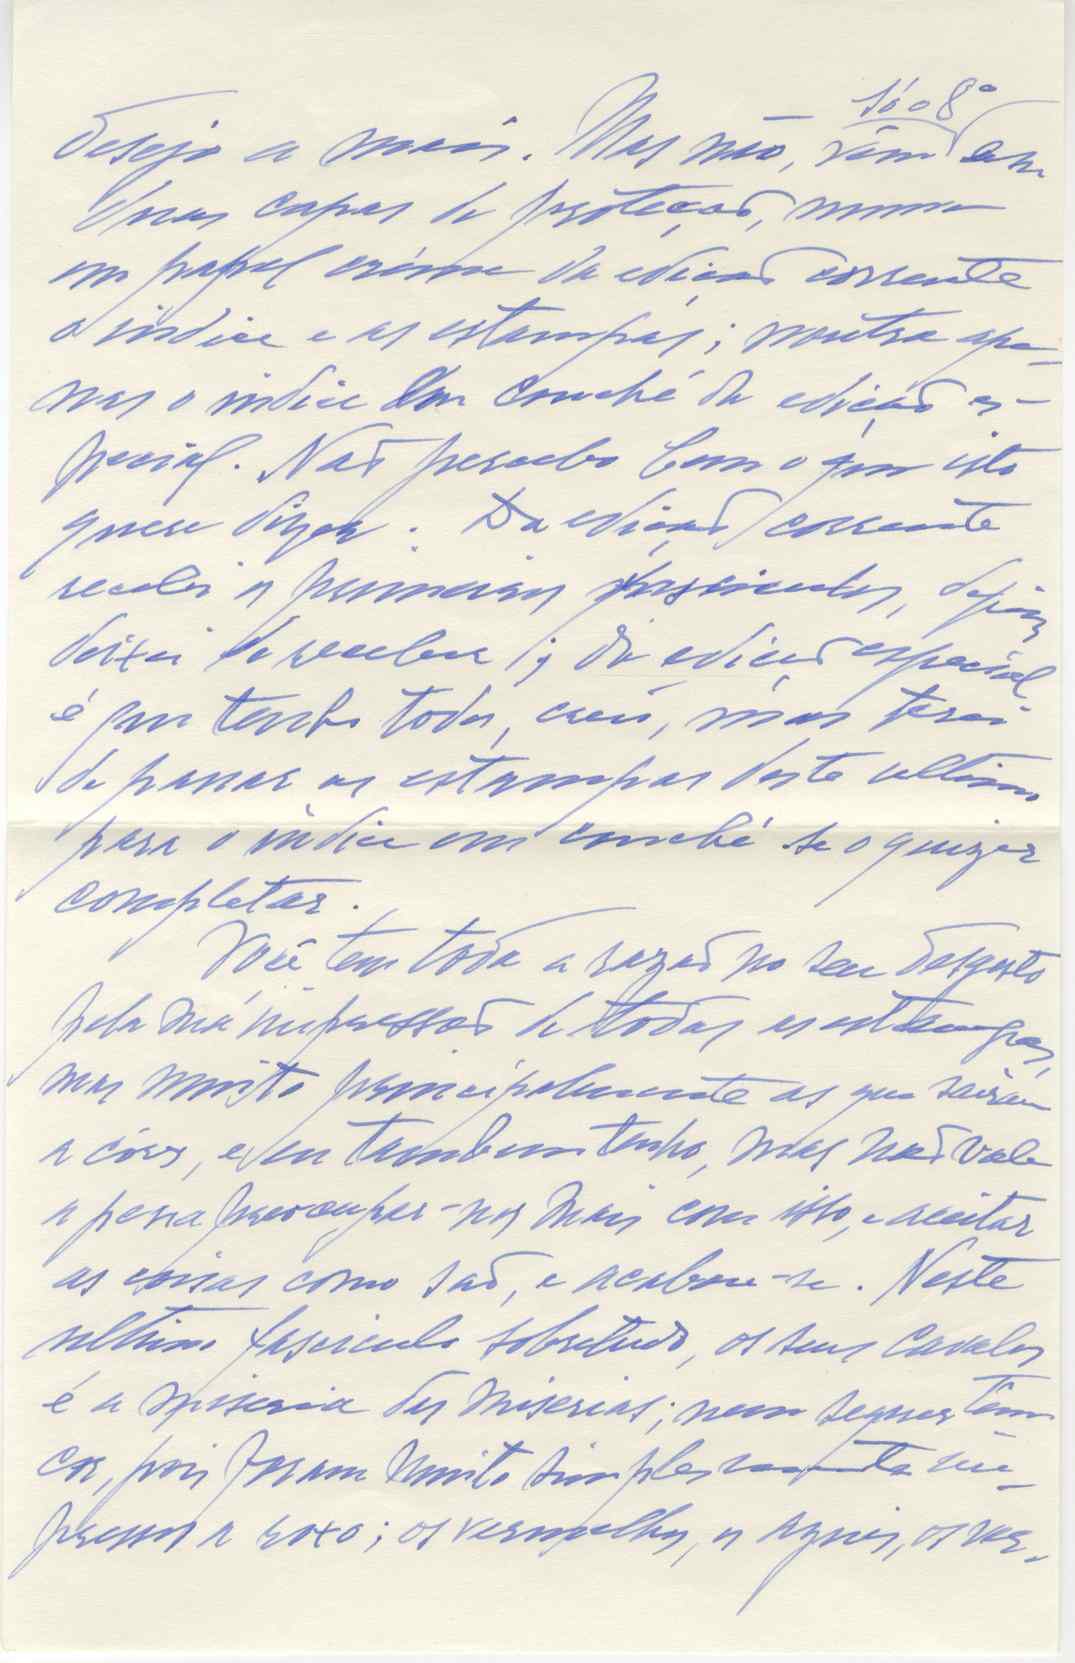 só o 8º
desejo a mais. Mas não, vêm em
duas capas de proteção, numa
em papel créme da edição corrente
o indice e as estampas; noutra ape-
nas o indice em couché da edição es-
pecial. Não percebo bem o que isto
quere dizer. Da edição corrente
recebi os primeiros fasciculos, depois
deixei de receber; da edição especial
é que tenho todos, creio, mas terei
de passar as estampas deste ultimo
para o indice em couché se o quizer
completar.
Você tem toda a razão no seu desgosto
pela má impressão de todas as estampas,
mas muito principalmente as que sairam
a côres, e eu tambem tenho, mas não vale
a pena preocupar-nos mais com isso, e aceitar
as coisas como são, e acabou-se. Neste
ultimo fasciculo sobretudo, os seus cavalos
é a miseria das miserias; nem sequer têm
côr, pois foram muito simplesmente im-
pressos a roxo; os vermelhos, os azuis, os ver-